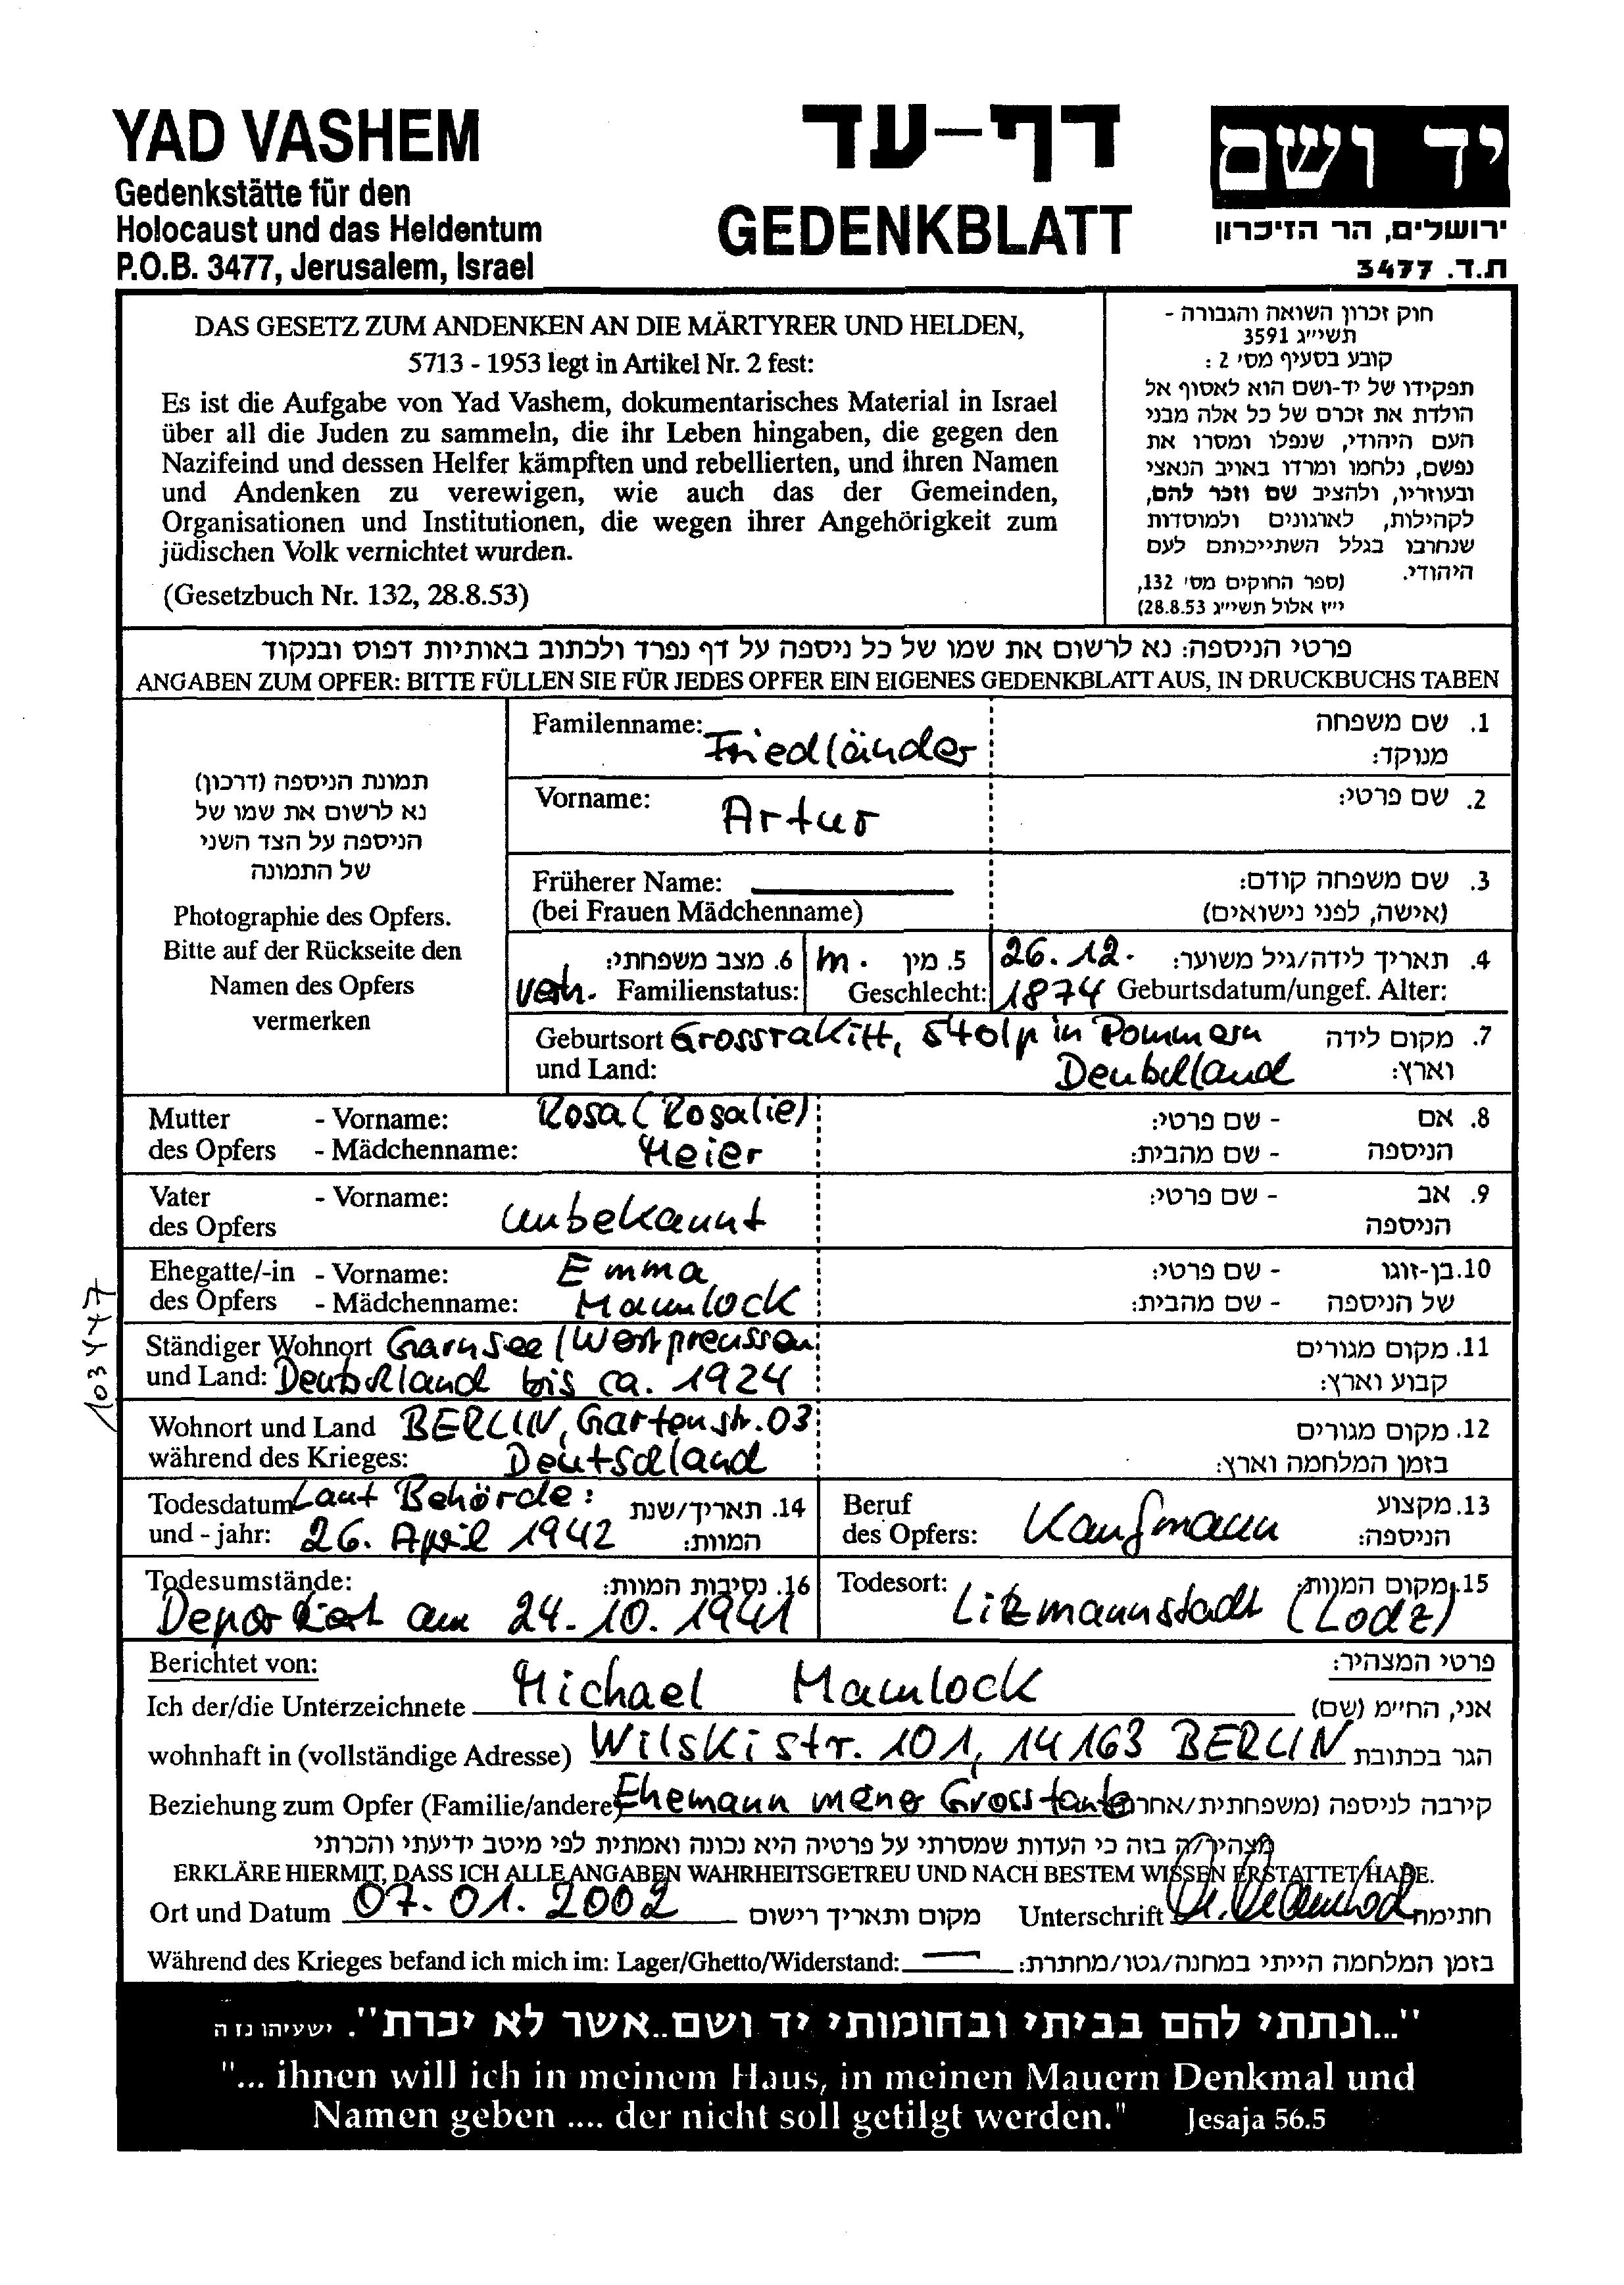 YAD VASHEM
Gedenkstätte für den
Holocaust und das Heldentum
P.O.B. 3477, Jerusalem, Israel
דף-עד
GEDENKBLATT
יד ושם
ירושלים, הר הזיכרון
ת.ד. 3477
DAS GESETZ ZUM ANDENKEN AN DIE MÄRTYRER UND HELDEN,
5713 - 1953 legt in Artikel Nr. 2 fest:
Es ist die Aufgabe von Yad Vashem, dokumentarisches Material in Israel
über all die Juden zu sammeln, die ihr Leben hingaben, die gegen den
Nazifeind und dessen Helfer kämpften und rebellierten, und ihren Namen
und Andenken zu verewigen, wie auch das der Gemeinden,
Organisationen und Institutionen, die wegen ihrer Angehörigkeit zum
jüdischen Volk vernichtet wurden.
(Gesetzbuch Nr. 132, 28.8.53)
חוק זכרון השואה והגבורה -
תשי"ג 3591
קובע בסעיף מס' 2 :
תפקידו של יד-ושם הוא לאסוף אל
הולדת את זכרם של כל אלה מבני
העם היהודי, שנפלו ומסרו את
נפשם, נלחמו ומרדו באויב הנאצי
ובעוזריו, ולהציב שם וזכר להם,
לקהילות, לארגונים ולמוסדות
שנחרבו בגלל השתייכותם לעם
היהודי. (ספר החוקים מס' 132,
י"ז אלול תשי"ג 28.8.53)
פרטי הניספה: נא לרשום את שמו של כל ניספה על דף נפרד ולכתוב באותיות דפוס ובנקוד
ANGABEN ZUM OPFER: BITTE FÜLLEN SIE FÜR JEDES OPFER EIN EIGENES GEDENKBLATT AUS, IN DRUCKBUCHS TABEN
תמונת הניספה (דרכון)
נא לרשום את שמו של
הניספה על הצד השני
של התמונה
Photographie des Opfers.
Bitte auf der Rückseite den
Namen des Opfers
vermerken
Familenname: Friedländer 1. שם משפחה
מנוקד:
Vorname: Artur 2. שם פרטי:
Früherer Name: 3. שם משפחה קודם:
(bei Frauen Mädchenname) (אישה, לפני נישואים)
6. מצב משפחתי: m. 5. מין 26.12. 4. תאריך לידה/גיל משוער:
verh. Familienstatus: Geschlecht: 1874 Geburtsdatum/ungef. Alter:
Geburtsort Grossrakitt, Stolp in Pommern 7. מקום לידה
und Land: Deutschland וארץ:
Mutter - Vorname: Rosa (Rosalie) 8. אם - שם פרטי:
des Opfers - Mädchenname: Meier הניספה - שם מהבית:
Vater - Vorname: unbekannt 9. אב - שם פרטי:
des Opfers הניספה
Ehegatte/-in - Vorname: Emma 10. בן-זוגו - שם פרטי:
des Opfers - Mädchenname: Mamlock של הניספה - שם מהבית:
Ständiger Wohnort Garnsee/Westpreussen 11. מקום מגורים
und Land: Deutschland bis ca. 1924 קבוע וארץ:
103447
Wohnort und Land BERLIN, Gartenstr. 03 12. מקום מגורים
während des Krieges: Deutschland בזמן המלחמה וארץ:
Todesdatum Laut Behörde: 14. תאריך/שנת
und - jahr: 26. April 1942 המוות:
Beruf Kaufmann 13. מקצוע
des Opfers: הניספה:
Todesumstände: 16. נסיבות המוות:
Deportiert am 24.10.1941
Todesort: Litzmannstadt (Lodz) 15. מקום המוות:
Berichtet von: פרטי המצהיר:
Ich der/die Unterzeichnete Michael Mamlock אני, החי"מ (שם)
wohnhaft in (vollständige Adresse) Wilskistr. 101, 14163 BERLIN הגר בכתובת
Beziehung zum Opfer (Familie/andere) Ehemann meiner Grosstante קירבה לניספה (משפחתית/אחרת)
מצהיר/ה בזה כי העדות שמסרתי על פרטיה היא נכונה ואמתית לפי מיטב ידיעתי והכרתי
ERKLÄRE HIERMIT, DASS ICH ALLE ANGABEN WAHRHEITSGETREU UND NACH BESTEM WISSEN ERSTATTET HABE.
Ort und Datum 07.01.2002 מקום ותאריך רישום Unterschrift M. Mamlock חתימה
Während des Krieges befand ich mich im: Lager/Ghetto/Widerstand: בזמן המלחמה הייתי במחנה/גטו/מחתרת:
"...ונתתי להם בביתי ובחומותי יד ושם..אשר לא יכרת". ישעיהו נז ה
"... ihnen will ich in meinem Haus, in meinen Mauern Denkmal und
Namen geben .... der nicht soll getilgt werden." Jesaja 56.5